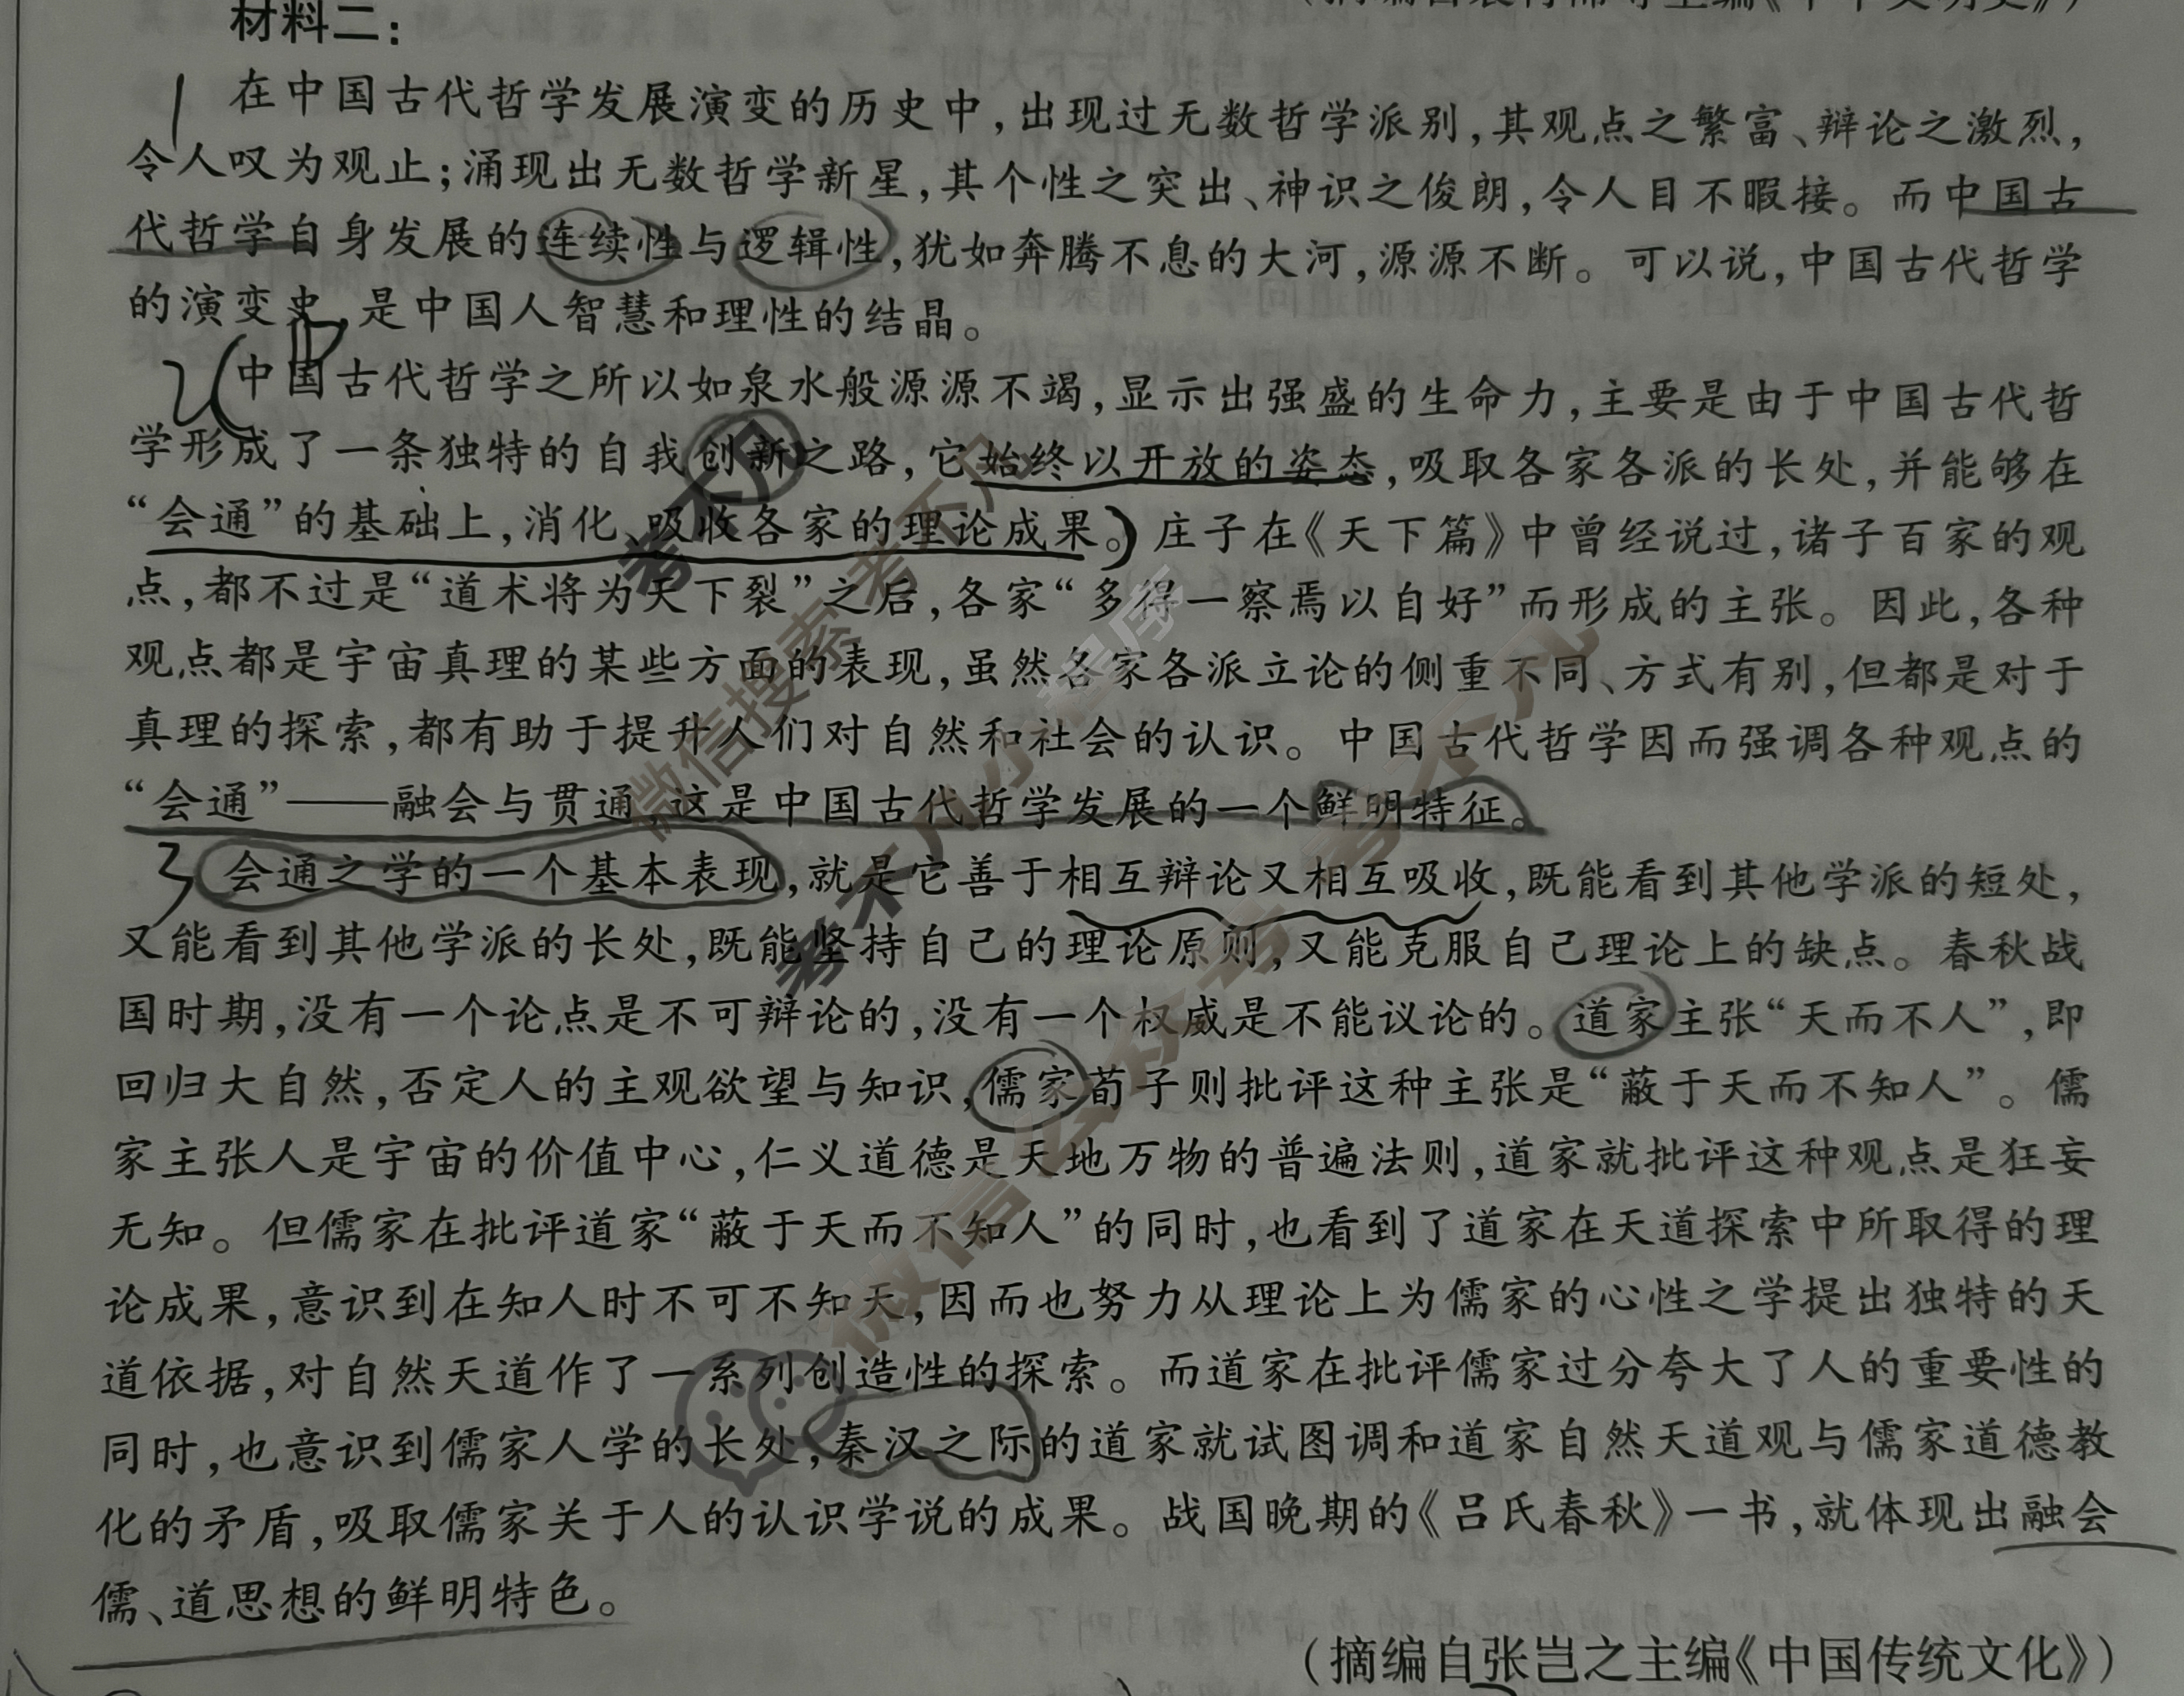 材料二：
在中国古代哲学发展演变的历史中，出现过无数哲学派别，其观点之繁富、辩论之激烈，
令人叹为观止；涌现出无数哲学新星，其个性之突出、神识之俊朗，令人目不暇接。而中国古
代哲学自身发展的连续性与逻辑性，犹如奔腾不息的大河，源源不断。可以说，中国古代哲学
的演变史，是中国人智慧和理性的结晶。
中国古代哲学之所以如泉水般源源不竭，显示出强盛的生命力，主要是由于中国古代哲
学形成了一条独特的自我创新之路，它始终以开放的姿态，吸取各家各派的长处，并能够在
“会通”的基础上，消化、吸收各家的理论成果。庄子在《天下篇》中曾经说过，诸子百家的观
点，都不过是“道术将为天下裂”之后，各家“多得一察焉以自好”而形成的主张。因此，各种
观点都是宇宙真理的某些方面的表现，虽然各家各派立论的侧重不同、方式有别，但都是对于
真理的探索，都有助于提升人们对自然和社会的认识。中国古代哲学因而强调各种观点的
“会通”——融会与贯通，这是中国古代哲学发展的一个鲜明特征。
会通之学的一个基本表现，就是它善于相互辩论又相互吸收，既能看到其他学派的短处，
又能看到其他学派的长处，既能坚持自己的理论原则，又能克服自己理论上的缺点。春秋战
国时期，没有一个论点是不可辩论的，没有一个权威是不能议论的。道家主张“天而不人”，即
回归大自然，否定人的主观欲望与知识，儒家荀子则批评这种主张是“蔽于天而不知人”。儒
家主张人是宇宙的价值中心，仁义道德是天地万物的普遍法则，道家就批评这种观点是狂妄
无知。但儒家在批评道家“蔽于天而不知人”的同时，也看到了道家在天道探索中所取得的理
论成果，意识到在知人时不可不知天，因而也努力从理论上为儒家的心性之学提出独特的天
道依据，对自然天道作了一系列创造性的探索。而道家在批评儒家过分夸大了人的重要性的
同时，也意识到儒家人学的长处，秦汉之际的道家就试图调和道家自然天道观与儒家道德教
化的矛盾，吸取儒家关于人的认识学说的成果。战国晚期的《吕氏春秋》一书，就体现出融会
儒、道思想的鲜明特色。
（摘编自张岂之主编《中国传统文化》）
1
2
3
考不凡
微信搜索 考不凡
考不凡小程序
微信公众号 考不凡